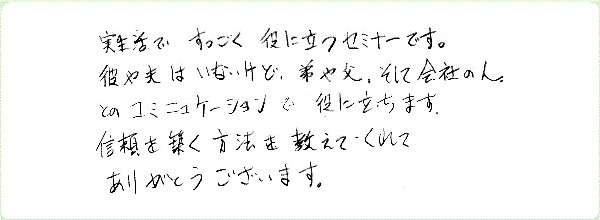 実生活で すっごく 役に立つセミナーです。
彼や夫はいないけど、弟や父、そして会社の人
とのコミュニケーションで 役に立ちます。
信頼を築く方法を教えてくれて
ありがとうございます。